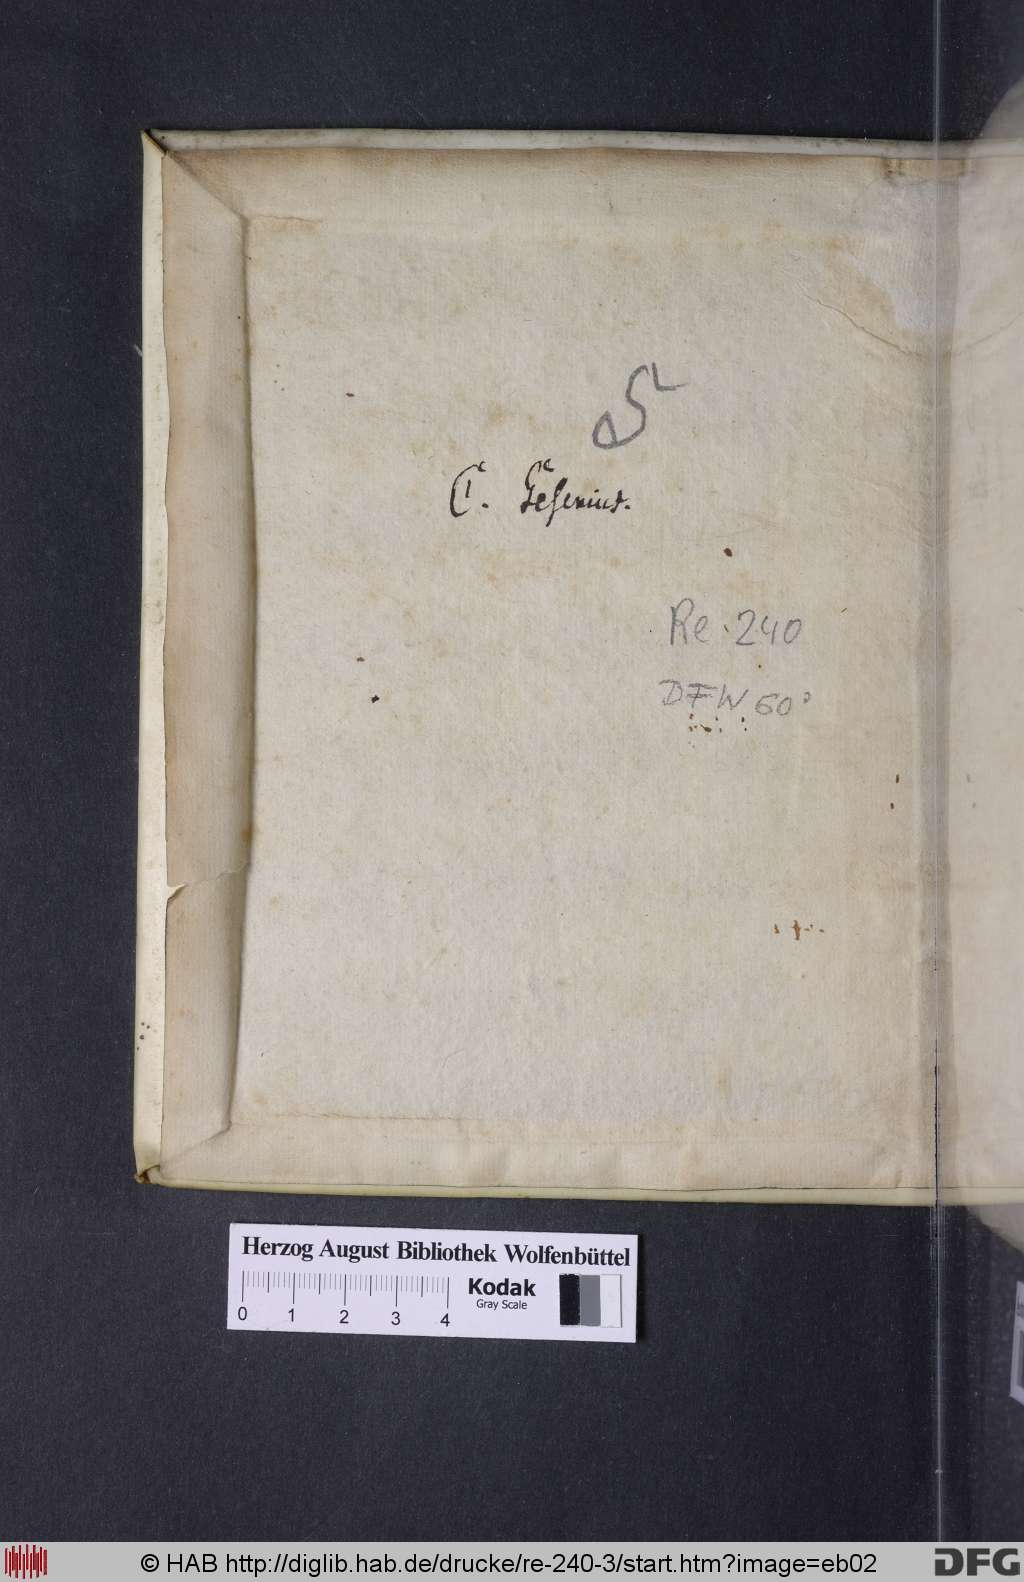 C. Gesenius.
Re 240
DFW 60
Herzog August Bibliothek Wolfenbüttel
Kodak
Gray Scale
0 1 2 3 4
© HAB http://diglib.hab.de/drucke/re-240-3/start.htm?image=eb02
DFG